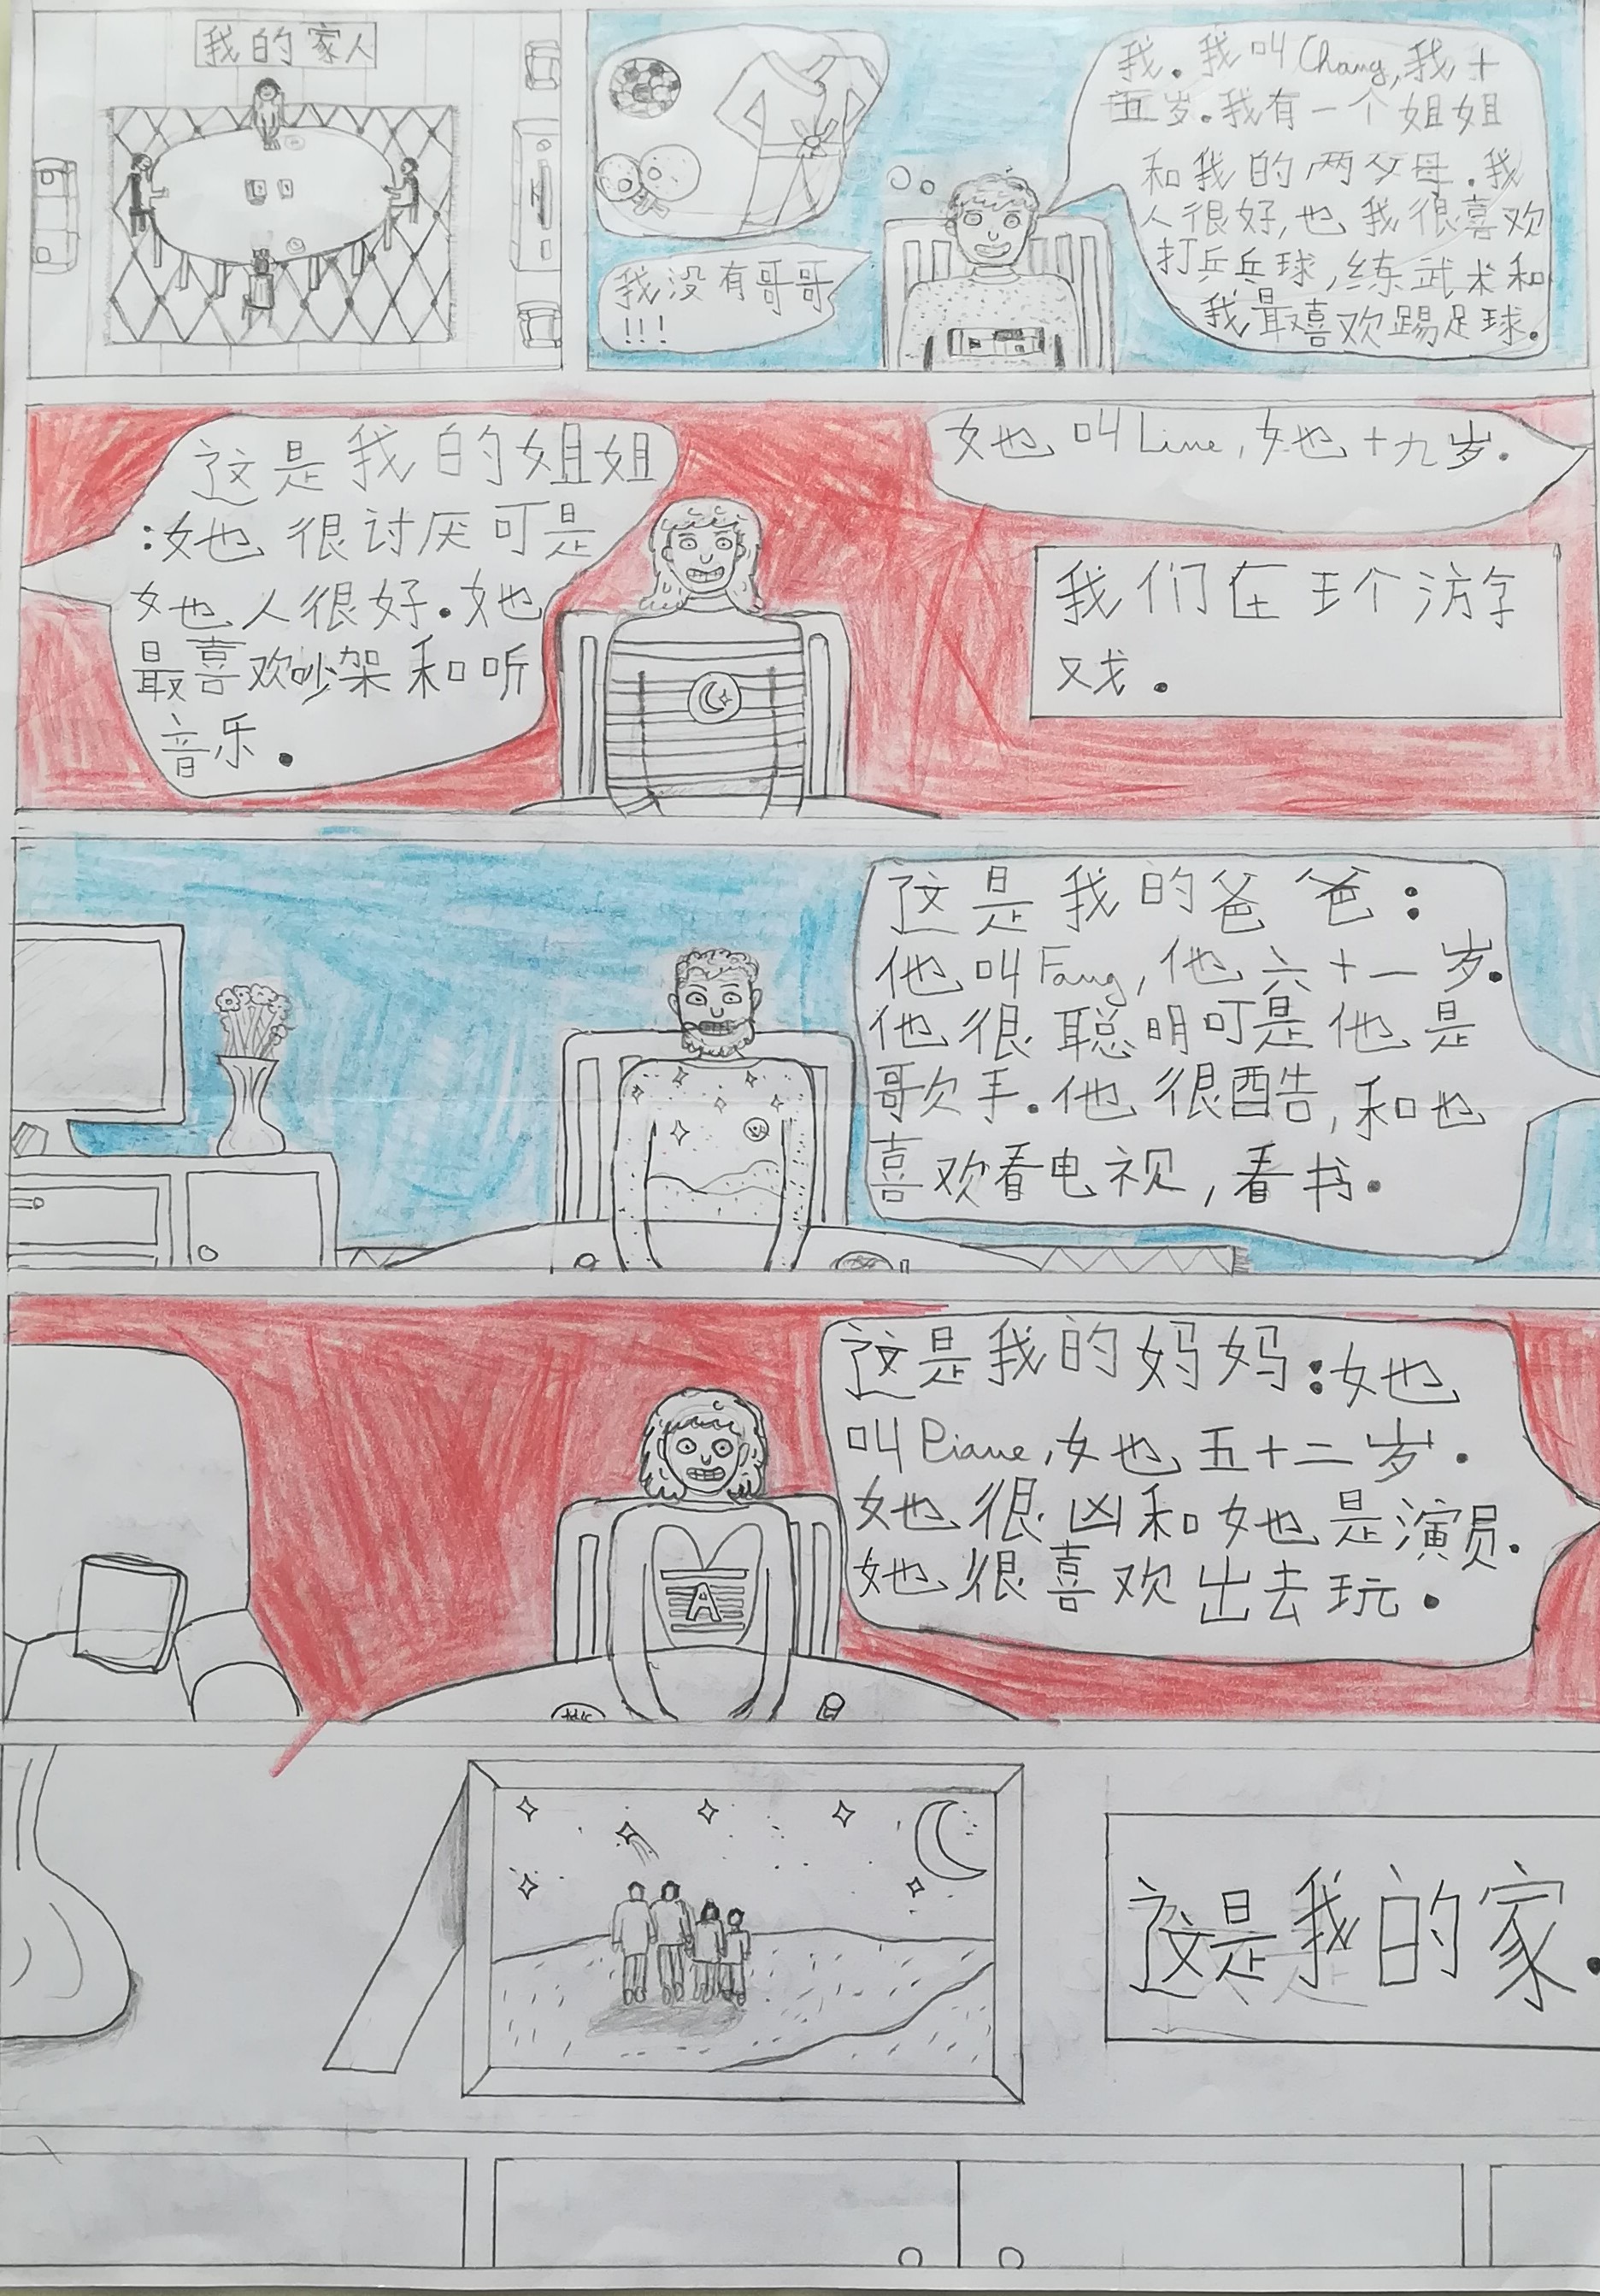 我的家人
我。我叫Chang,我十
五岁。我有一个姐姐
和我的两父母。我
人很好,也我很喜欢
打乒乓球,练武术和
我最喜欢踢足球。
我没有哥哥
!!!
这是我的姐姐
:她很讨厌可是
她人很好。她
最喜欢吵架和听
音乐。
她叫Line,她十九岁。
我们在玩个游
戏。
这是我的爸爸:
他叫Fang,他六十一岁。
他很聪明可是他是
歌手。他很酷,和也
喜欢看电视,看书。
这是我的妈妈:她
叫Piane,她五十二岁。
她很凶和她是演员。
她很喜欢出去玩。
A
这是我的家。